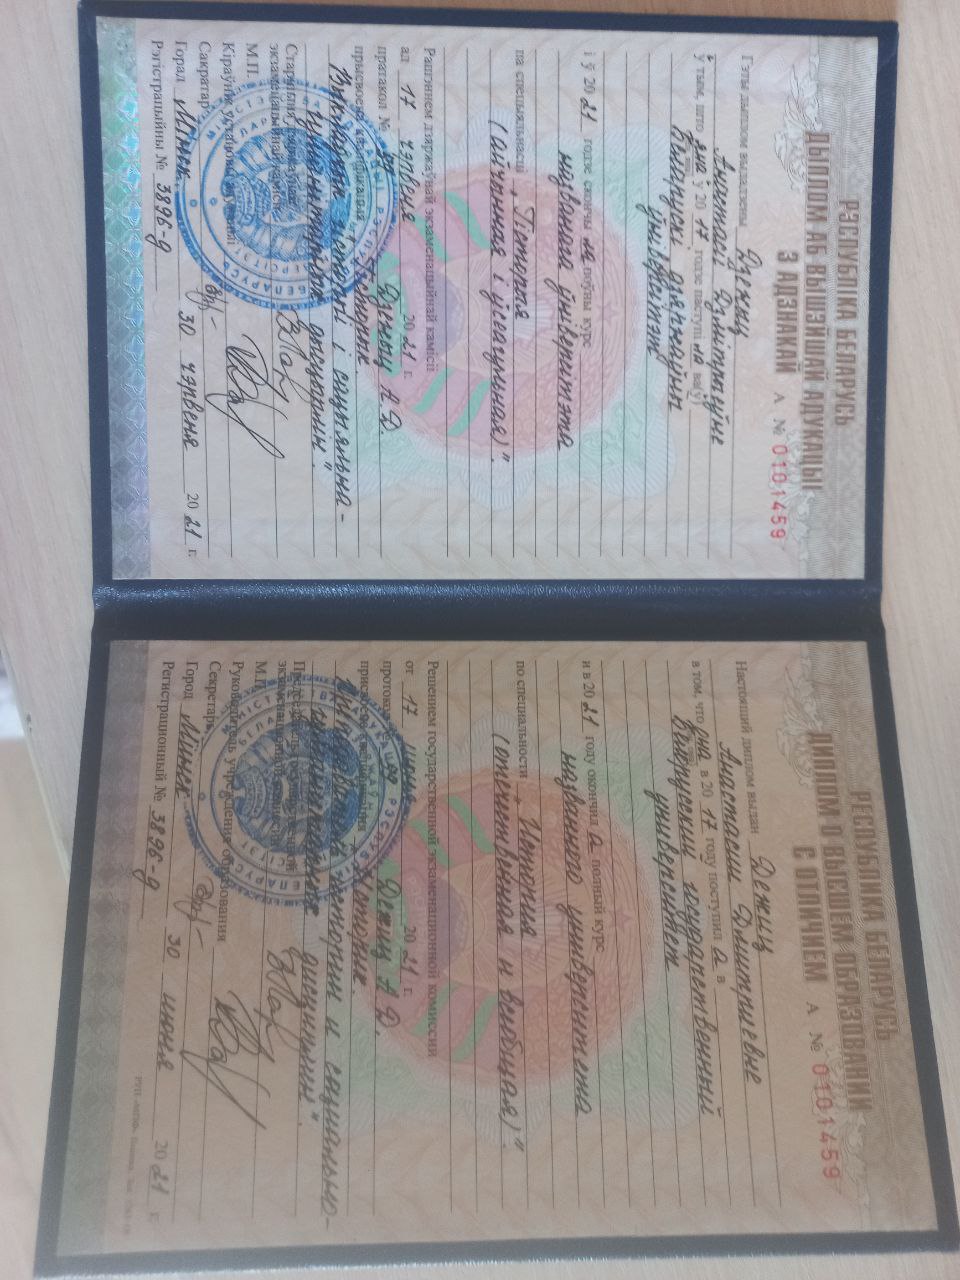 РЭСПУБЛІКА БЕЛАРУСЬ
ДЫПЛОМ АБ ВЫШЭЙШАЙ АДУКАЦЫІ
З АДЗНАКАЙ А № 0101459
Гэты дыплом выдадзены Дежиц
Анастасіі Дзмітрыеўне
ў тым, што яна ў 20 17 годзе паступіла ва (ў)
Беларускі дзяржаўны
ўніверсітэт
і ў 20 21 годзе скончыла поўны курс
названага ўніверсітэта
па спецыяльнасці „Гісторыя
(айчынная і ўсеагульная)“.
Рашэннем дзяржаўнай экзаменацыйнай камісіі
ад 17 чэрвеня 20 21 г.
пратакол № Дежиц А.Д.
прысвоена кваліфікацыя Гісторык.
Выкладчык гісторыі і сацыяльна-
гуманітарных дысцыплін.“
Старшыня дзяржаўнай
экзаменацыйнай камісіі
М.П.
Кіраўнік установы адукацыі
Сакратар
Горад Мінск 30 чэрвеня 20 21 г.
Рэгістрацыйны № 3896-д
РЕСПУБЛИКА БЕЛАРУСЬ
ДИПЛОМ О ВЫСШЕМ ОБРАЗОВАНИИ
С ОТЛИЧИЕМ А № 0101459
Настоящий диплом выдан Дежиц
Анастасии Дмитриевне
в том, что она в 20 17 году поступила в
Белорусский государственный
университет
и в 20 21 году окончила полный курс
названного университета
по специальности „История
(отечественная и всеобщая)“.
Решением государственной экзаменационной комиссии
от 17 июня 20 21 г.
протокол № Дежиц А.Д.
присвоена квалификация Историк.
истории и социально-
гуманитарных дисциплин.“
Председатель государственной
экзаменационной комиссии
М.П.
Руководитель учреждения образования
Секретарь
Город Минск 30 июня 20 21 г.
Регистрационный № 3896-д